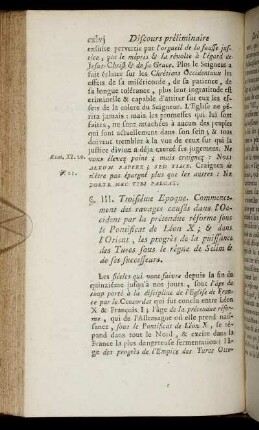 cxlvj Discours préliminaire
ensuite pervertir par l'orgueil de la fausse justice,
par le mépris & la révolte à l'égard de
Jesus-Christ & de sa Grace. Plus le Seigneur a
fait éclater sur les Chrétiens Occidentaux les
effets de sa miséricorde, de sa patience, de
sa longue tolérance ; plus leur ingratitude est
criminelle & capable d'attirer sur eux les effets
de la colere du Seigneur. L'Eglise ne périra
jamais : mais les promesses qui lui sont
faites, ne sont attachées à aucun des peuples
qui sont actuellement dans son sein ; & tous
doivent trembler à la vue de ceux sur qui la
justice divine a déja exercé ses jugemens. Ne
Rom. XI. 20. vous élevez point ; mais craignez : NOLI
ALTUM SAPERE ; SED TIME. Craignez de
℣ 21. n'être pas épargné plus que les autres : NE
FORTE NEC TIBI PARCAT.
§. III. Troisiéme Epoque. Commencement
des ravages causés dans l'Occident
par la prétendue réforme sous
le Pontificat de Léon X ; & dans
l'Orient, les progrès de la puissance
des Turcs sous le régne de Selim &
de ses successeurs.
Les siécles qui vont suivre depuis la fin du
quinziéme jusqu'à nos jours, sont l'âge du
coup porté à la discipline de l'Eglise de France
par le Concordat qui fut conclu entre Léon
X & François I ; l'âge de la prétendue réforme,
qui de l'Allemagne où elle prend naissance,
sous le Pontificat de Léon X, se répand
dans tout le Nord, & excite dans la
France la plus dangereuse fermentation ; l'âge
des progrès de l'Empire des Turcs Otto-